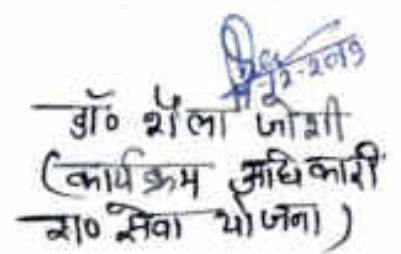 डॉ० शैला जोशी
(कार्यक्रम अधिकारी
रा० सेवा योजना)